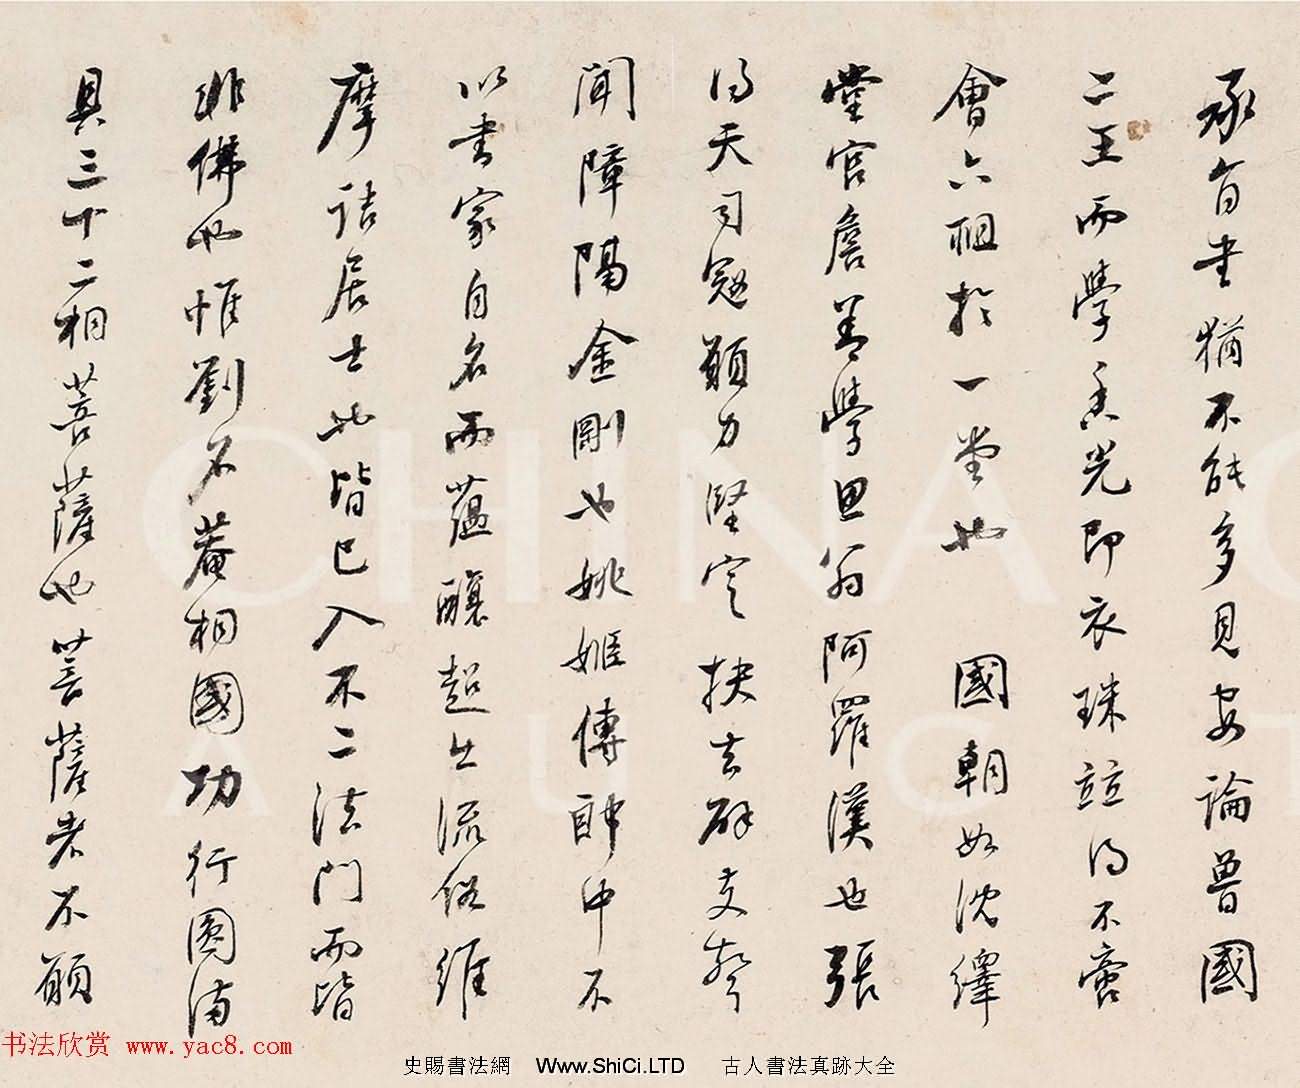 承旨書猶不能多見安論魯國
二王而學香光即衣珠竝得不啻
會六祖於一堂也 國朝如沈繹
堂官詹善學思翁阿羅漢也張
得天司寇願力堅定抉去辟支聲
聞障隔金剛也姚姬傳郎中不
以書家自名而蘊釀超出流俗維
摩詰居士也皆已入不二法門而皆
非佛也惟劉石菴相國功行圓滿
具三十二相菩薩也菩薩者不願
CHINA
AUCT
书法欣赏 www.yac8.com
史賜書法網 Www.ShiCi.LTD 古人書法真跡大全